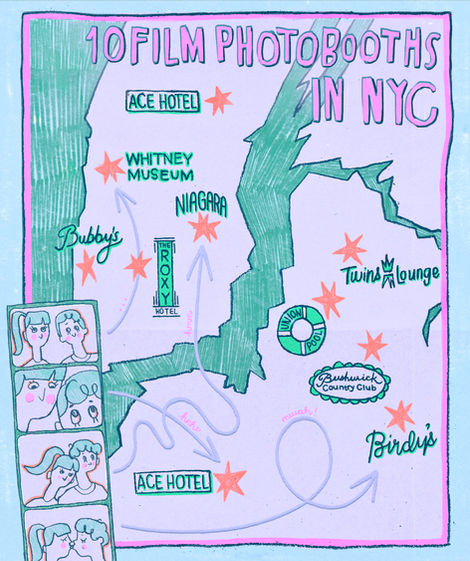 10 FILM PHOTOBOOTHS
IN NYC
ACE HOTEL
WHITNEY
MUSEUM
NIAGARA
Bubby's
THE
ROXY
HOTEL
Twins Lounge
UNION
POOL
Bushwick
Country Club
Birdy's
hehe
muah!
ACE HOTEL